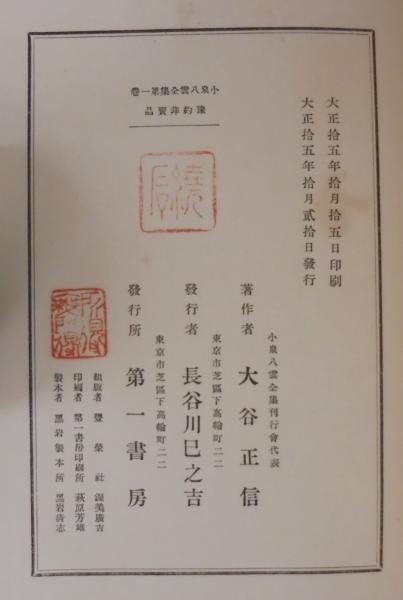 小泉八雲全集第一卷
豫約非賣品
大正拾五年拾月拾五日印刷
大正拾五年拾月貳拾日發行
小泉八雲全集刊行會代表
著作者 大谷正信
東京市芝區下高輪町二二
發行者 長谷川巳之吉
東京市芝區下高輪町二二
發行所 第一書房
組版者 豐榮社 渥美廣吉
印刷者 第一書房印刷所 萩原芳雄
製本者 黑岩製本所 黑岩清志